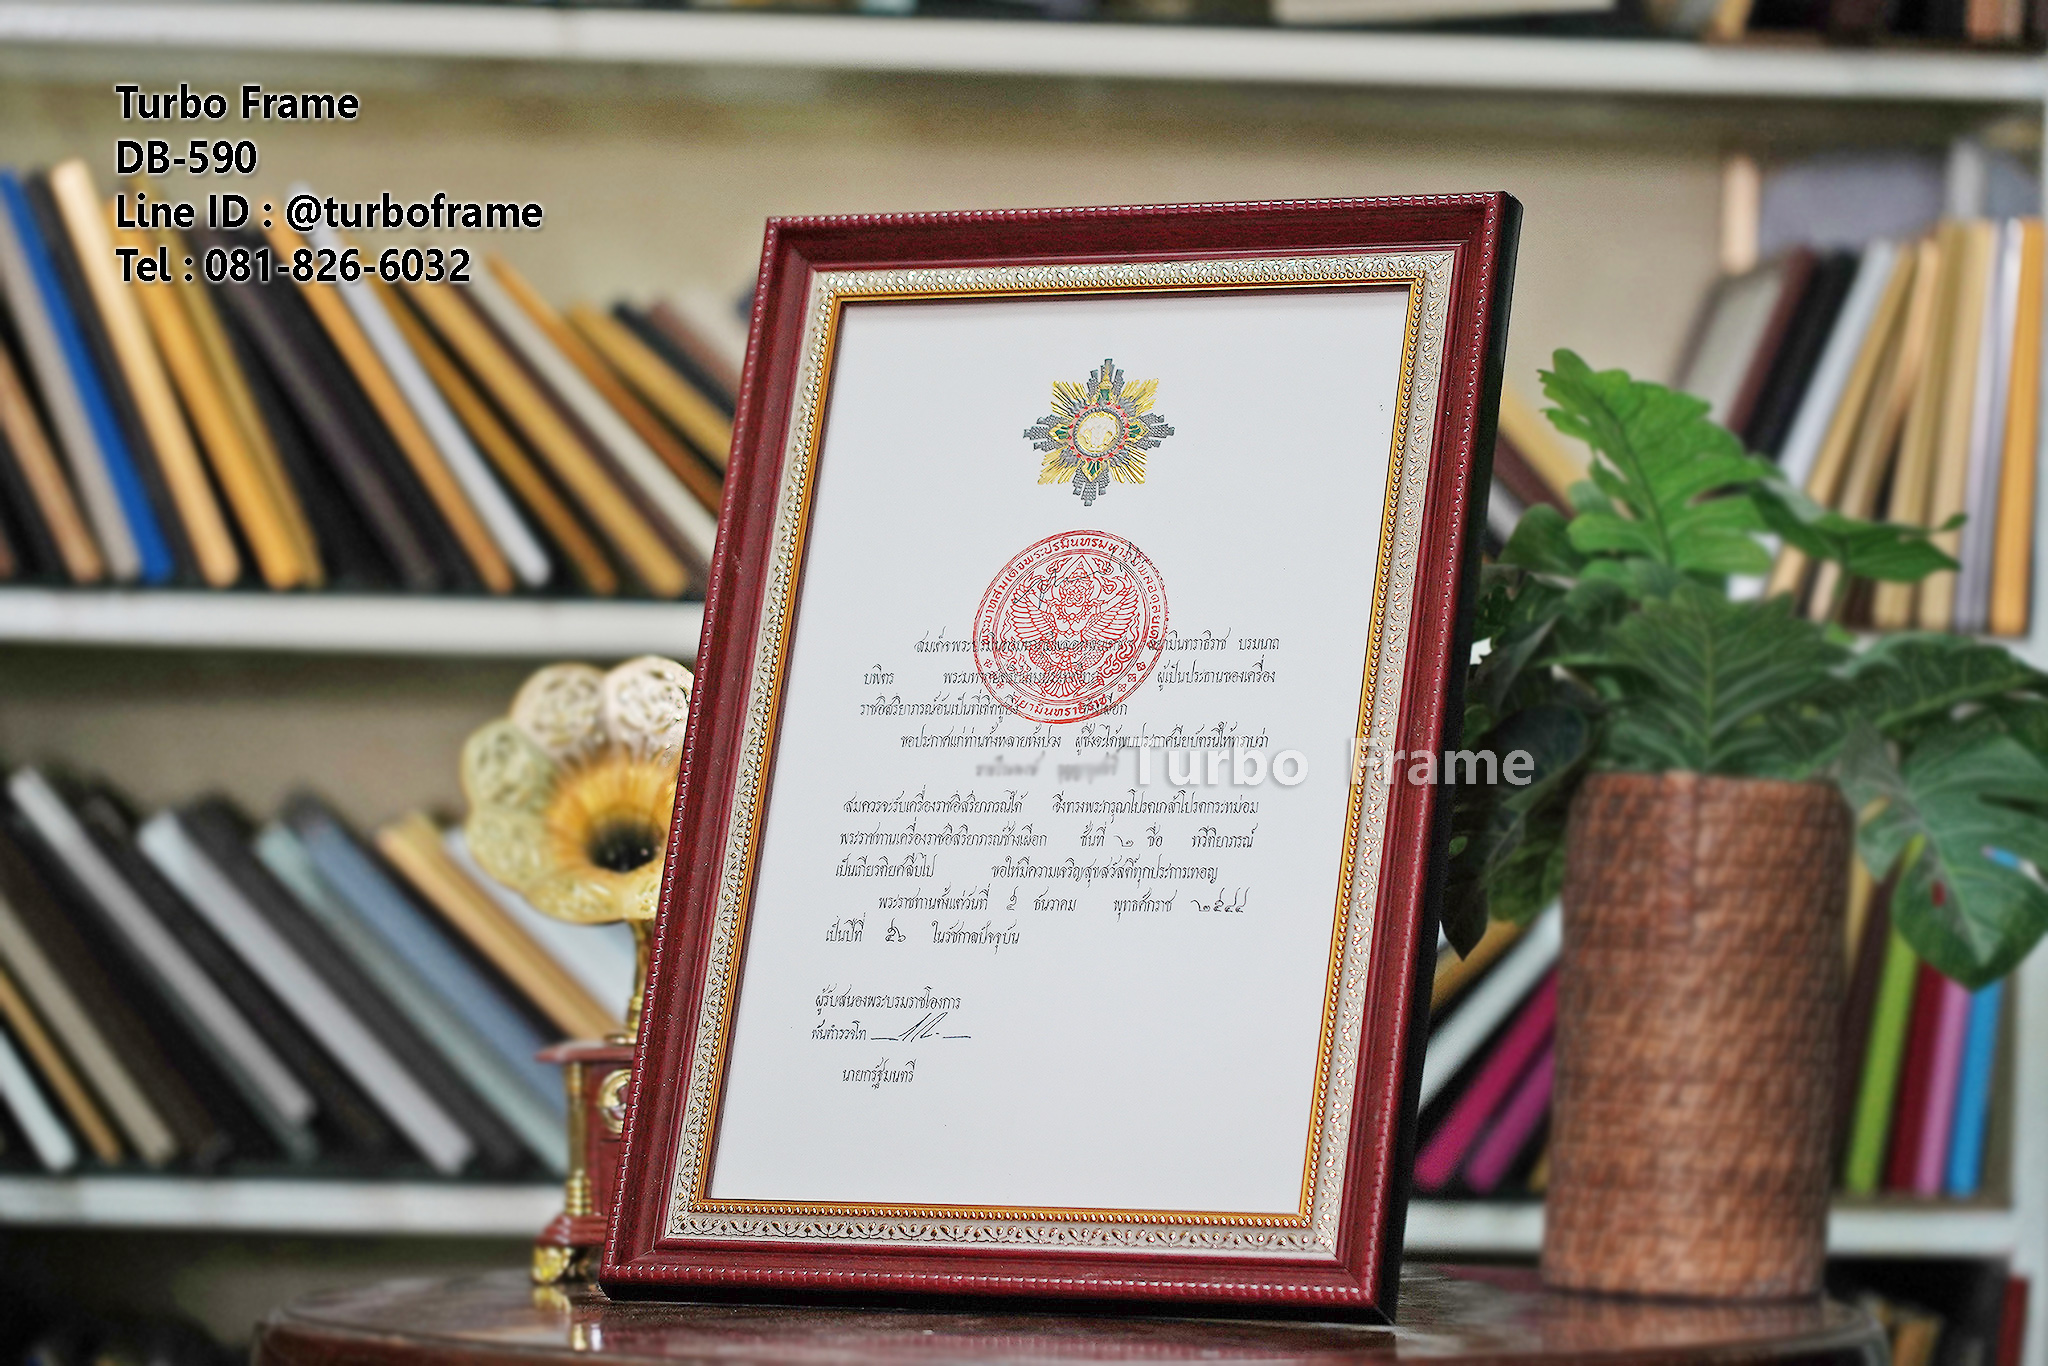 Turbo Frame
DB-590
Line ID : @turboframe
Tel : 081-826-6032
สมเด็จพระปรมินทรมหา ยามินทราธิราช บรมนาถ
บพิตร ผู้เป็นประธานของเครื่อง
ราชอิสริยาภรณ์อันเป็นที่เชิดชูยิ่ง ช้างเผือก
ขอประกาศแก่ท่านทั้งหลายทั้งปวง ผู้ซึ่งจะได้พบประกาศนียบัตรนี้ให้ทราบว่า
Turbo Frame
สมควรจะรับเครื่องราชอิสริยาภรณ์ได้ จึงทรงพระกรุณาโปรดเกล้าโปรดกระหม่อม
พระราชทานเครื่องราชอิสริยาภรณ์ช้างเผือก ชั้นที่ ๒ ชื่อ ทวีติยาภรณ์
เป็นเกียรติยศสืบไป ขอให้มีความเจริญสุขสวัสดิ์ทุกประการเทอญ
พระราชทานตั้งแต่วันที่ ๕ ธันวาคม พุทธศักราช ๒๕๔๔
เป็นปีที่ ๕๖ ในรัชกาลปัจจุบัน
ผู้รับสนองพระบรมราชโองการ
พันตำรวจโท
นายกรัฐมนตรี